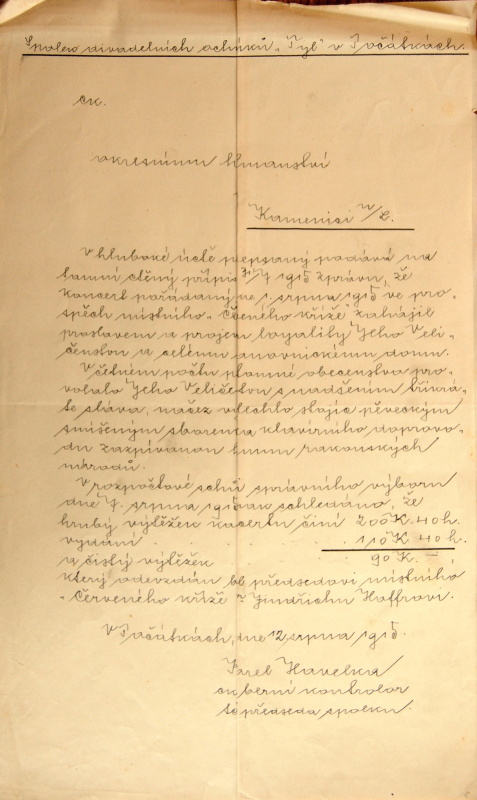 Spolek divadelních ochtníků „Tyl" v Počátkách.
ck.
okresnímu hmanství
Kamenici n/L.
V hluboké úctě pepsaný podává na
tamní ctěný přípis 31/7 1915 zprávu, že
koncert pořádaný ne 1. srpna 1915 ve pro-
spěch místního „Čveného kříže" zahájil
proslovem a projem loyality Jeho Veli-
čenstvu a celému anovnickému domu.
V četném počtu přítomné obecenstvo pro-
volalo Jeho Veličetvu s nadšením třikrá-
te sláva, načež vdechlo stojíc pěveckým
smíšeným sborem a klavírního doprovo-
du zazpívanou hymnu rakouských
národů.
V rozpočtové schů správního výboru
dne 7. srpna 1915 schledáno, že
hrubý výtěžek kocertu činí 200 K. 40 h.
vydání 110 K 40 h.
a čistý výtěžek 90 K. —
který odevzdán bl předsedovi místního
„Červeného kříže" Jindřichu Hoffrovi.
V Počátkách, dne 12 srpna 1915.
Karel Havelka
ck berní kontrolor
předseda spolku.